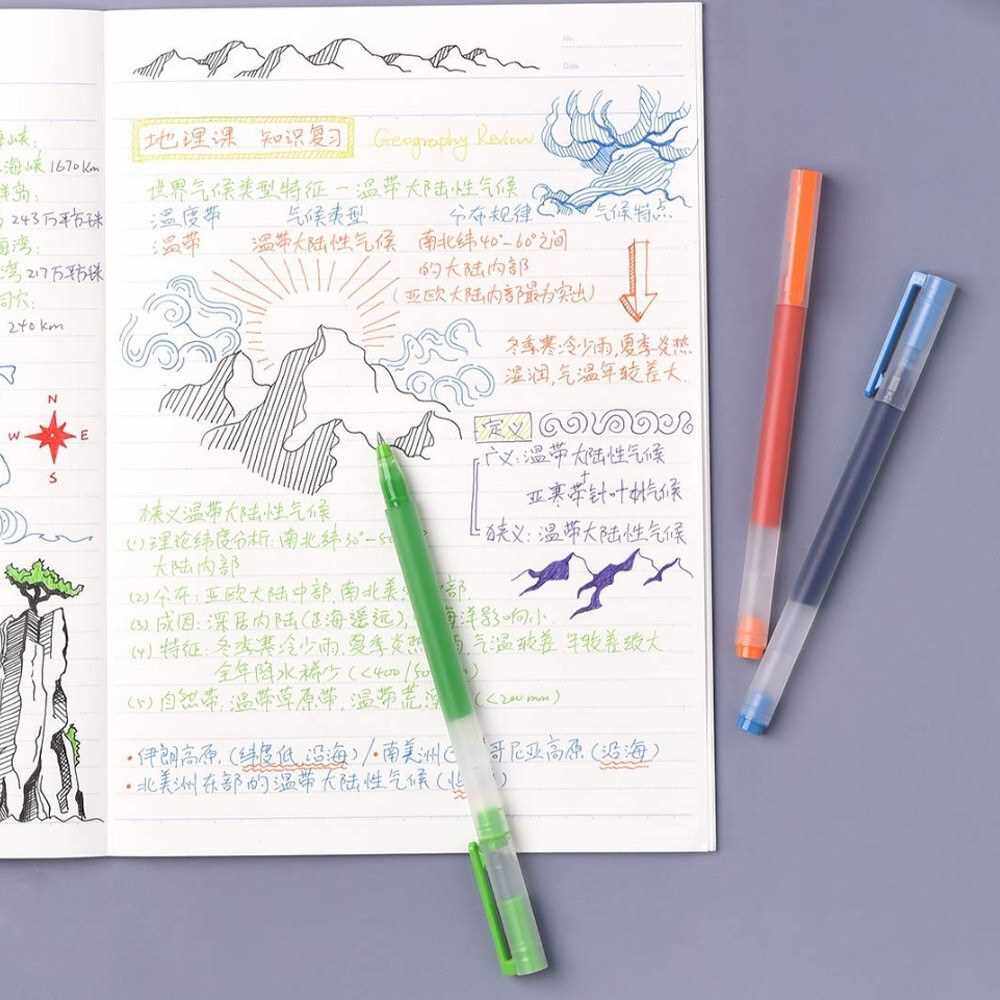 海峡 1670km
243万平方米
海湾:
湾 217万平方米
240km
N
W E
S
No.
Date
地理课 知识复习 Geography Review
世界气候类型特征－温带大陆性气候
温度带 气候类型 分布规律 气候特点
温带 温带大陆性气候 南北纬40°-60°之间
的大陆内部
(亚欧大陆内部最为突出)
冬季寒冷少雨,夏季炎热
湿润,气温年较差大.
定义
广义:温带大陆性气候
+
亚寒带针叶林气候
狭义:温带大陆性气候
狭义温带大陆性气候
(1)理论纬度分析:南北纬
大陆内部
(2)分布:亚欧大陆中部,南北美 部.
(3)成因:深居内陆(距海遥远), 海洋影响小.
(4)特征:冬季寒冷少雨,夏季炎热 ,气温较差 年较差较大
全年降水稀少(<400/50
(5)自然带,温带草原带,温带荒 (<200mm)
•伊朗高原.(纬度低,沿海)/•南美洲( 哥尼亚高原(沿海)
•北美洲东部的温带大陆性气候(